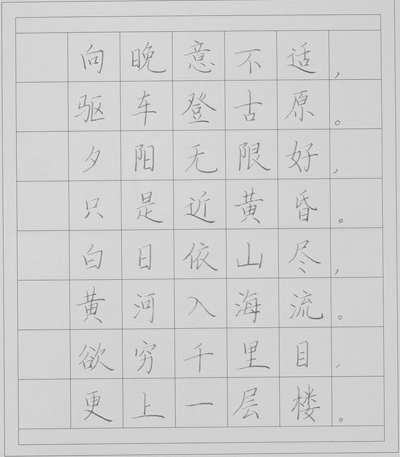 向晚意不适，
驱车登古原。
夕阳无限好，
只是近黄昏。
白日依山尽，
黄河入海流。
欲穷千里目，
更上一层楼。